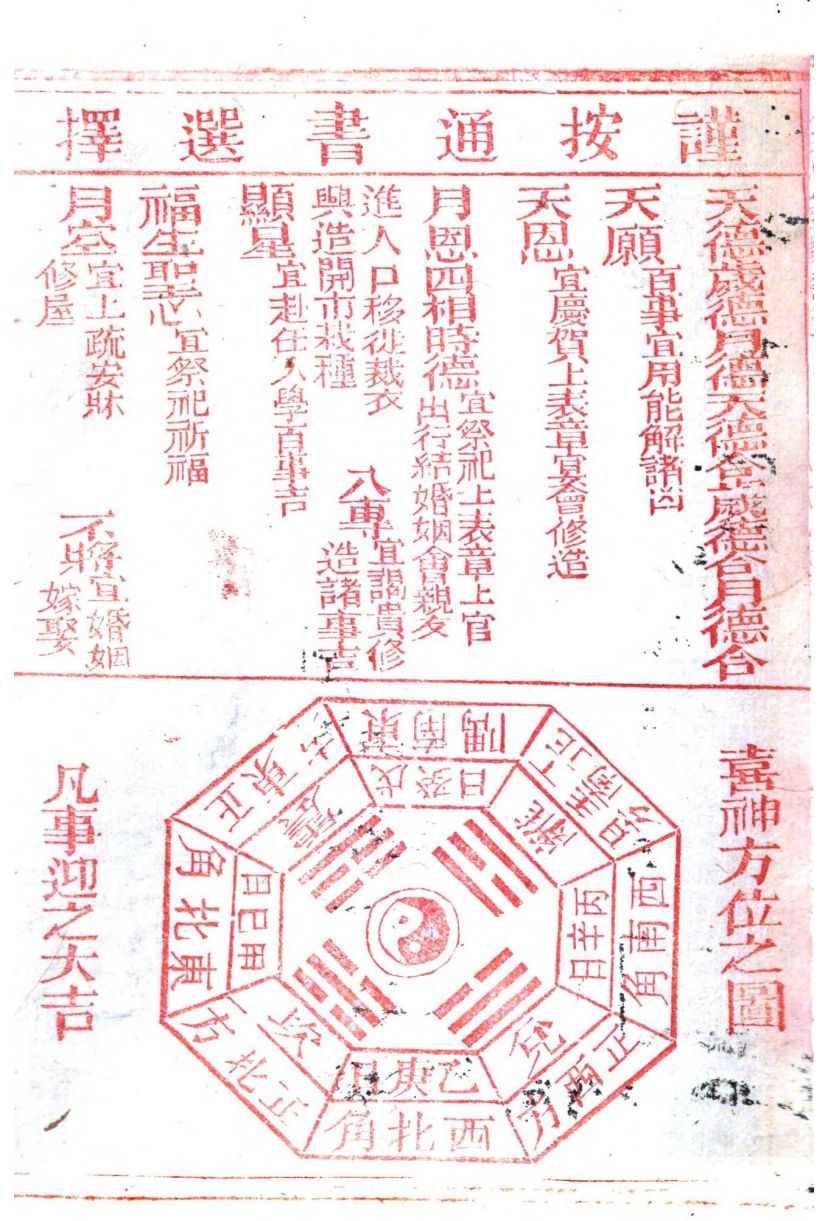 謹按通書選擇
天德歲德月德天德合歲德合月德合
天願百事宜用能解諸凶
天恩宜慶賀上表章宴會修造
月恩四相時德宜祭祀上表章上官
出行結婚姻會親友
進人口移徙裁衣
興造開市栽種
八專宜謁貴修
造諸事吉
顯星宜赴任入學百事吉
福生聖志宜祭祀祈福
月空宜上疏安牀
修屋
不將宜婚姻
嫁娶
喜神方位之圖
東南隅
戊癸日
正南方
丁壬日
離
西南角
丙辛日
正西方
兌
西北角
乙庚日
正北方
坎
東北角
甲己日
正東方
震
凡事迎之大吉